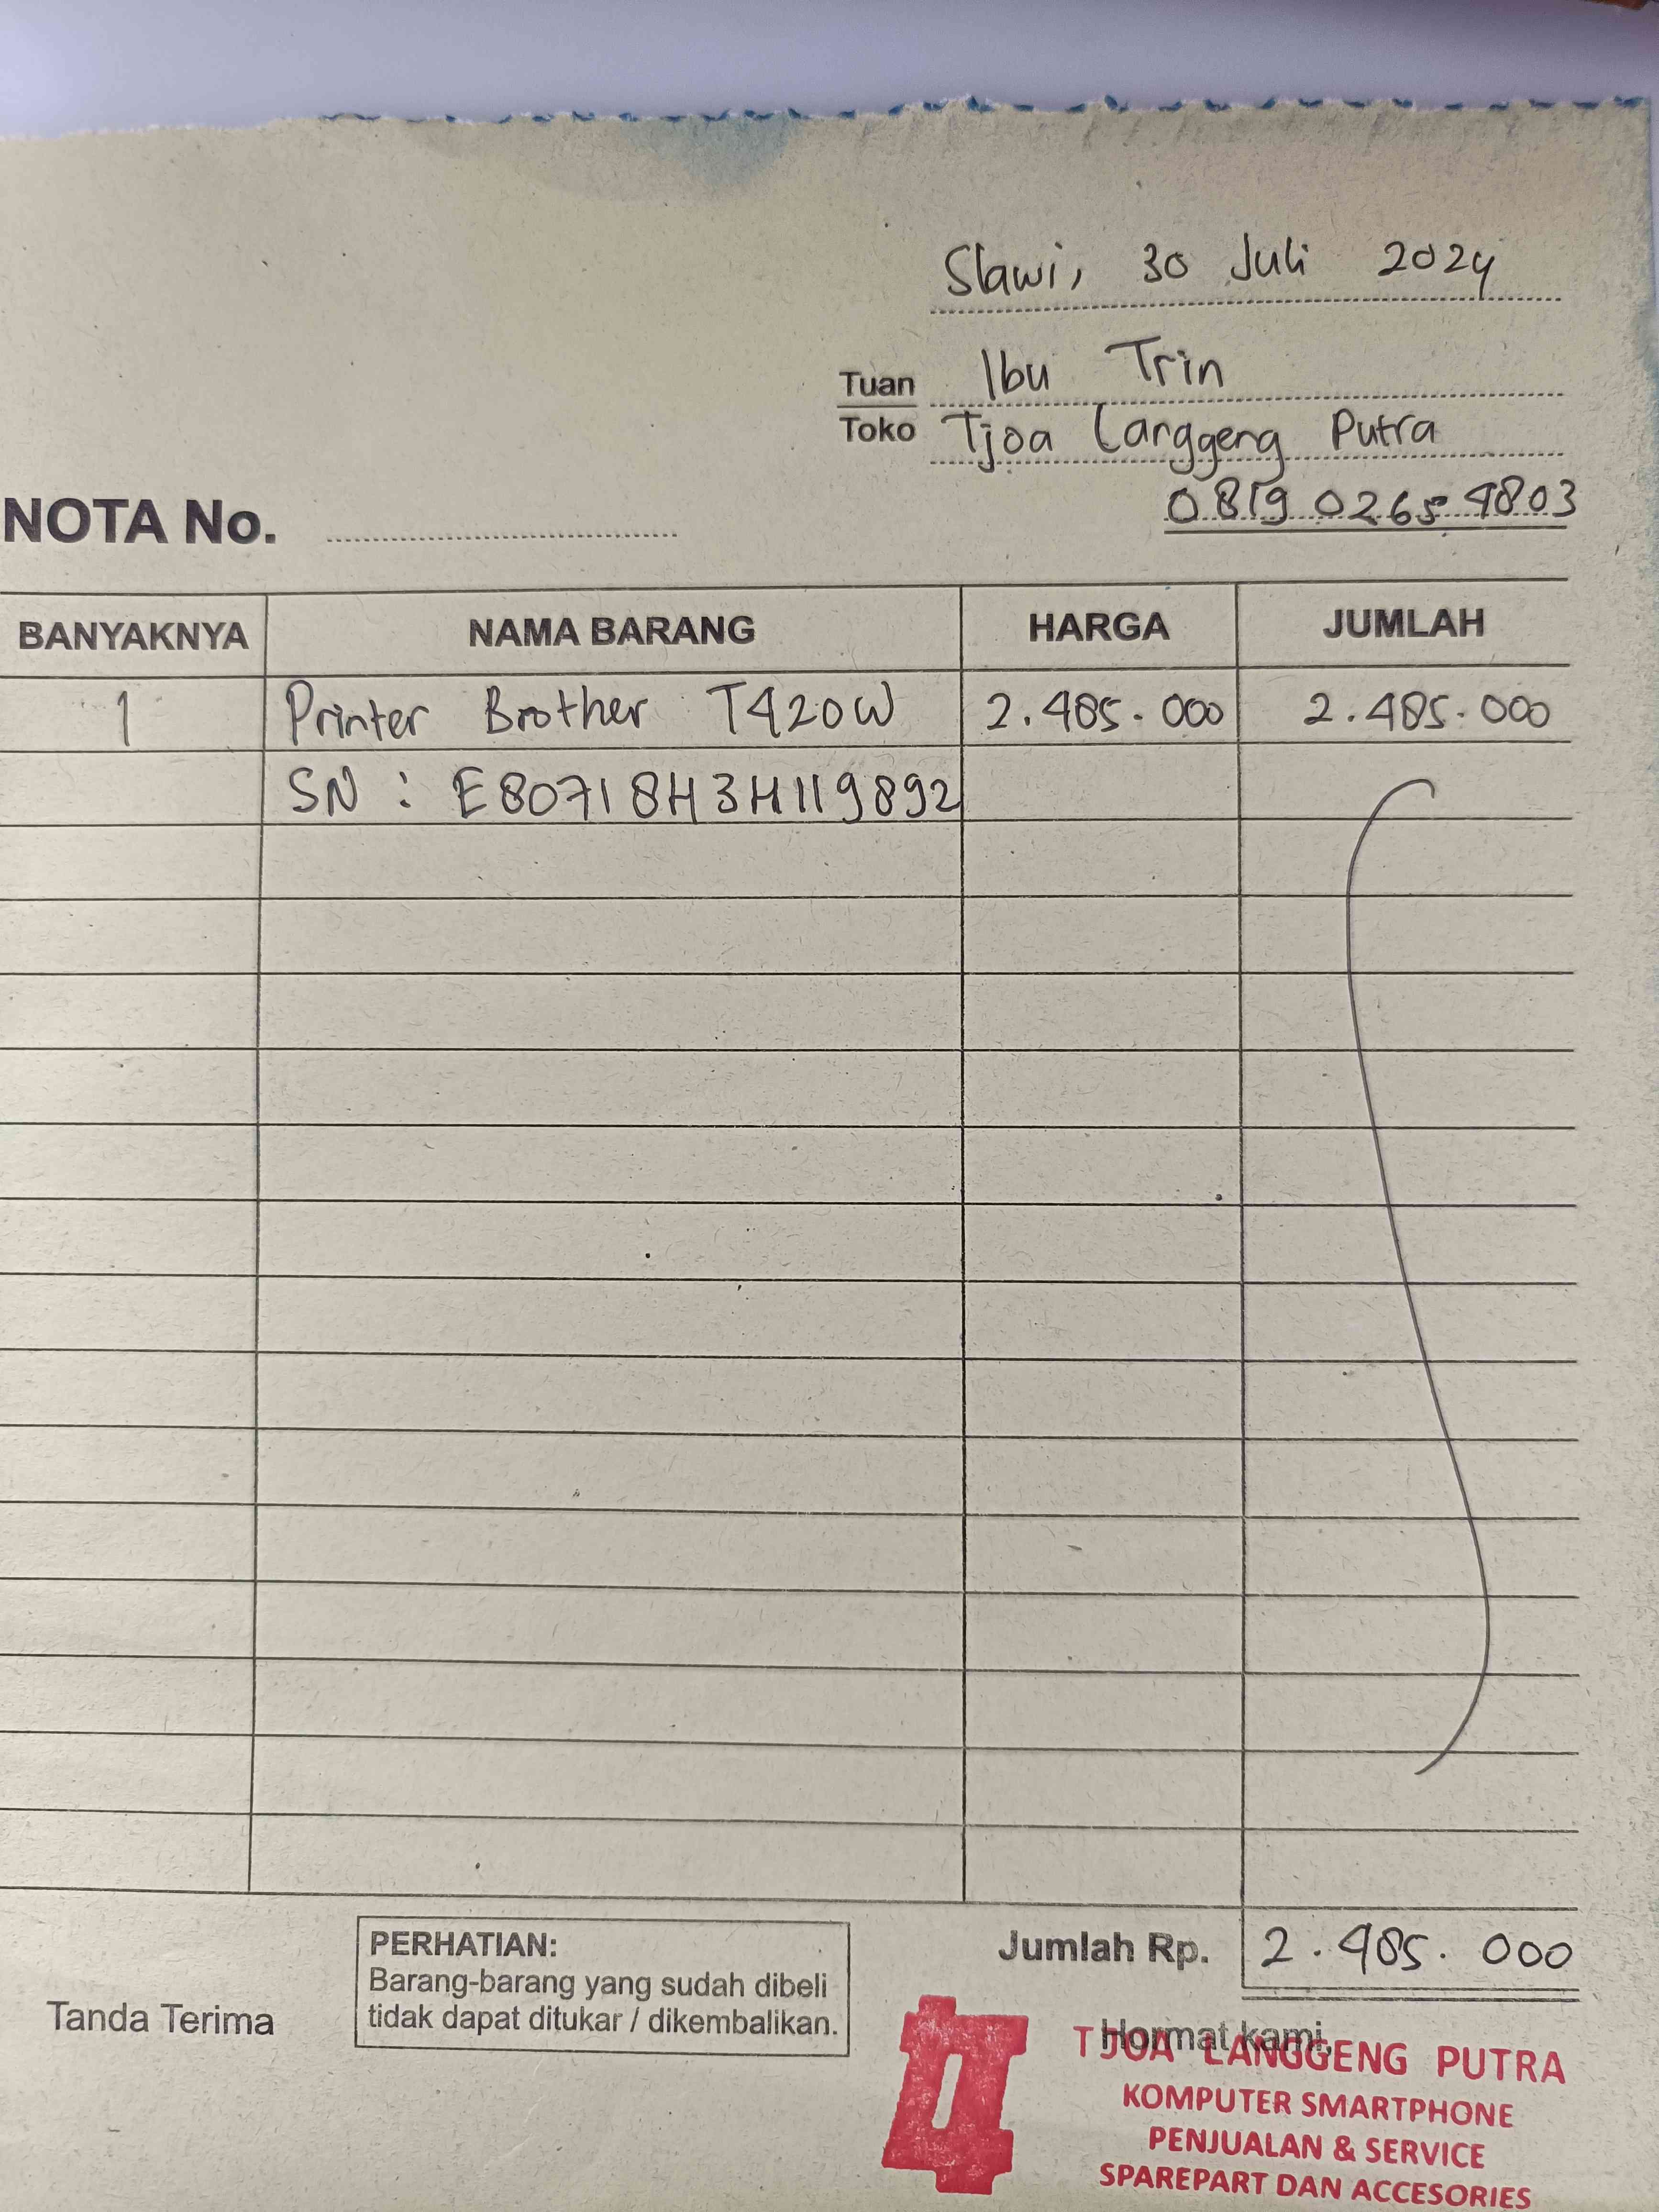 Slawi, 30 Juli 2024
Tuan Ibu Trin
Toko Tjoa Langgeng Putra
0819 0265 4803
NOTA No.
BANYAKNYA NAMA BARANG HARGA JUMLAH
1 Printer Brother T420W 2.485.000 2.485.000
SN : E80718H3H119892
Jumlah Rp. 2.485.000
PERHATIAN:
Barang-barang yang sudah dibeli
tidak dapat ditukar / dikembalikan.
Tanda Terima
Hormat kami,
TJOA LANGGENG PUTRA
KOMPUTER SMARTPHONE
PENJUALAN & SERVICE
SPAREPART DAN ACCESORIES